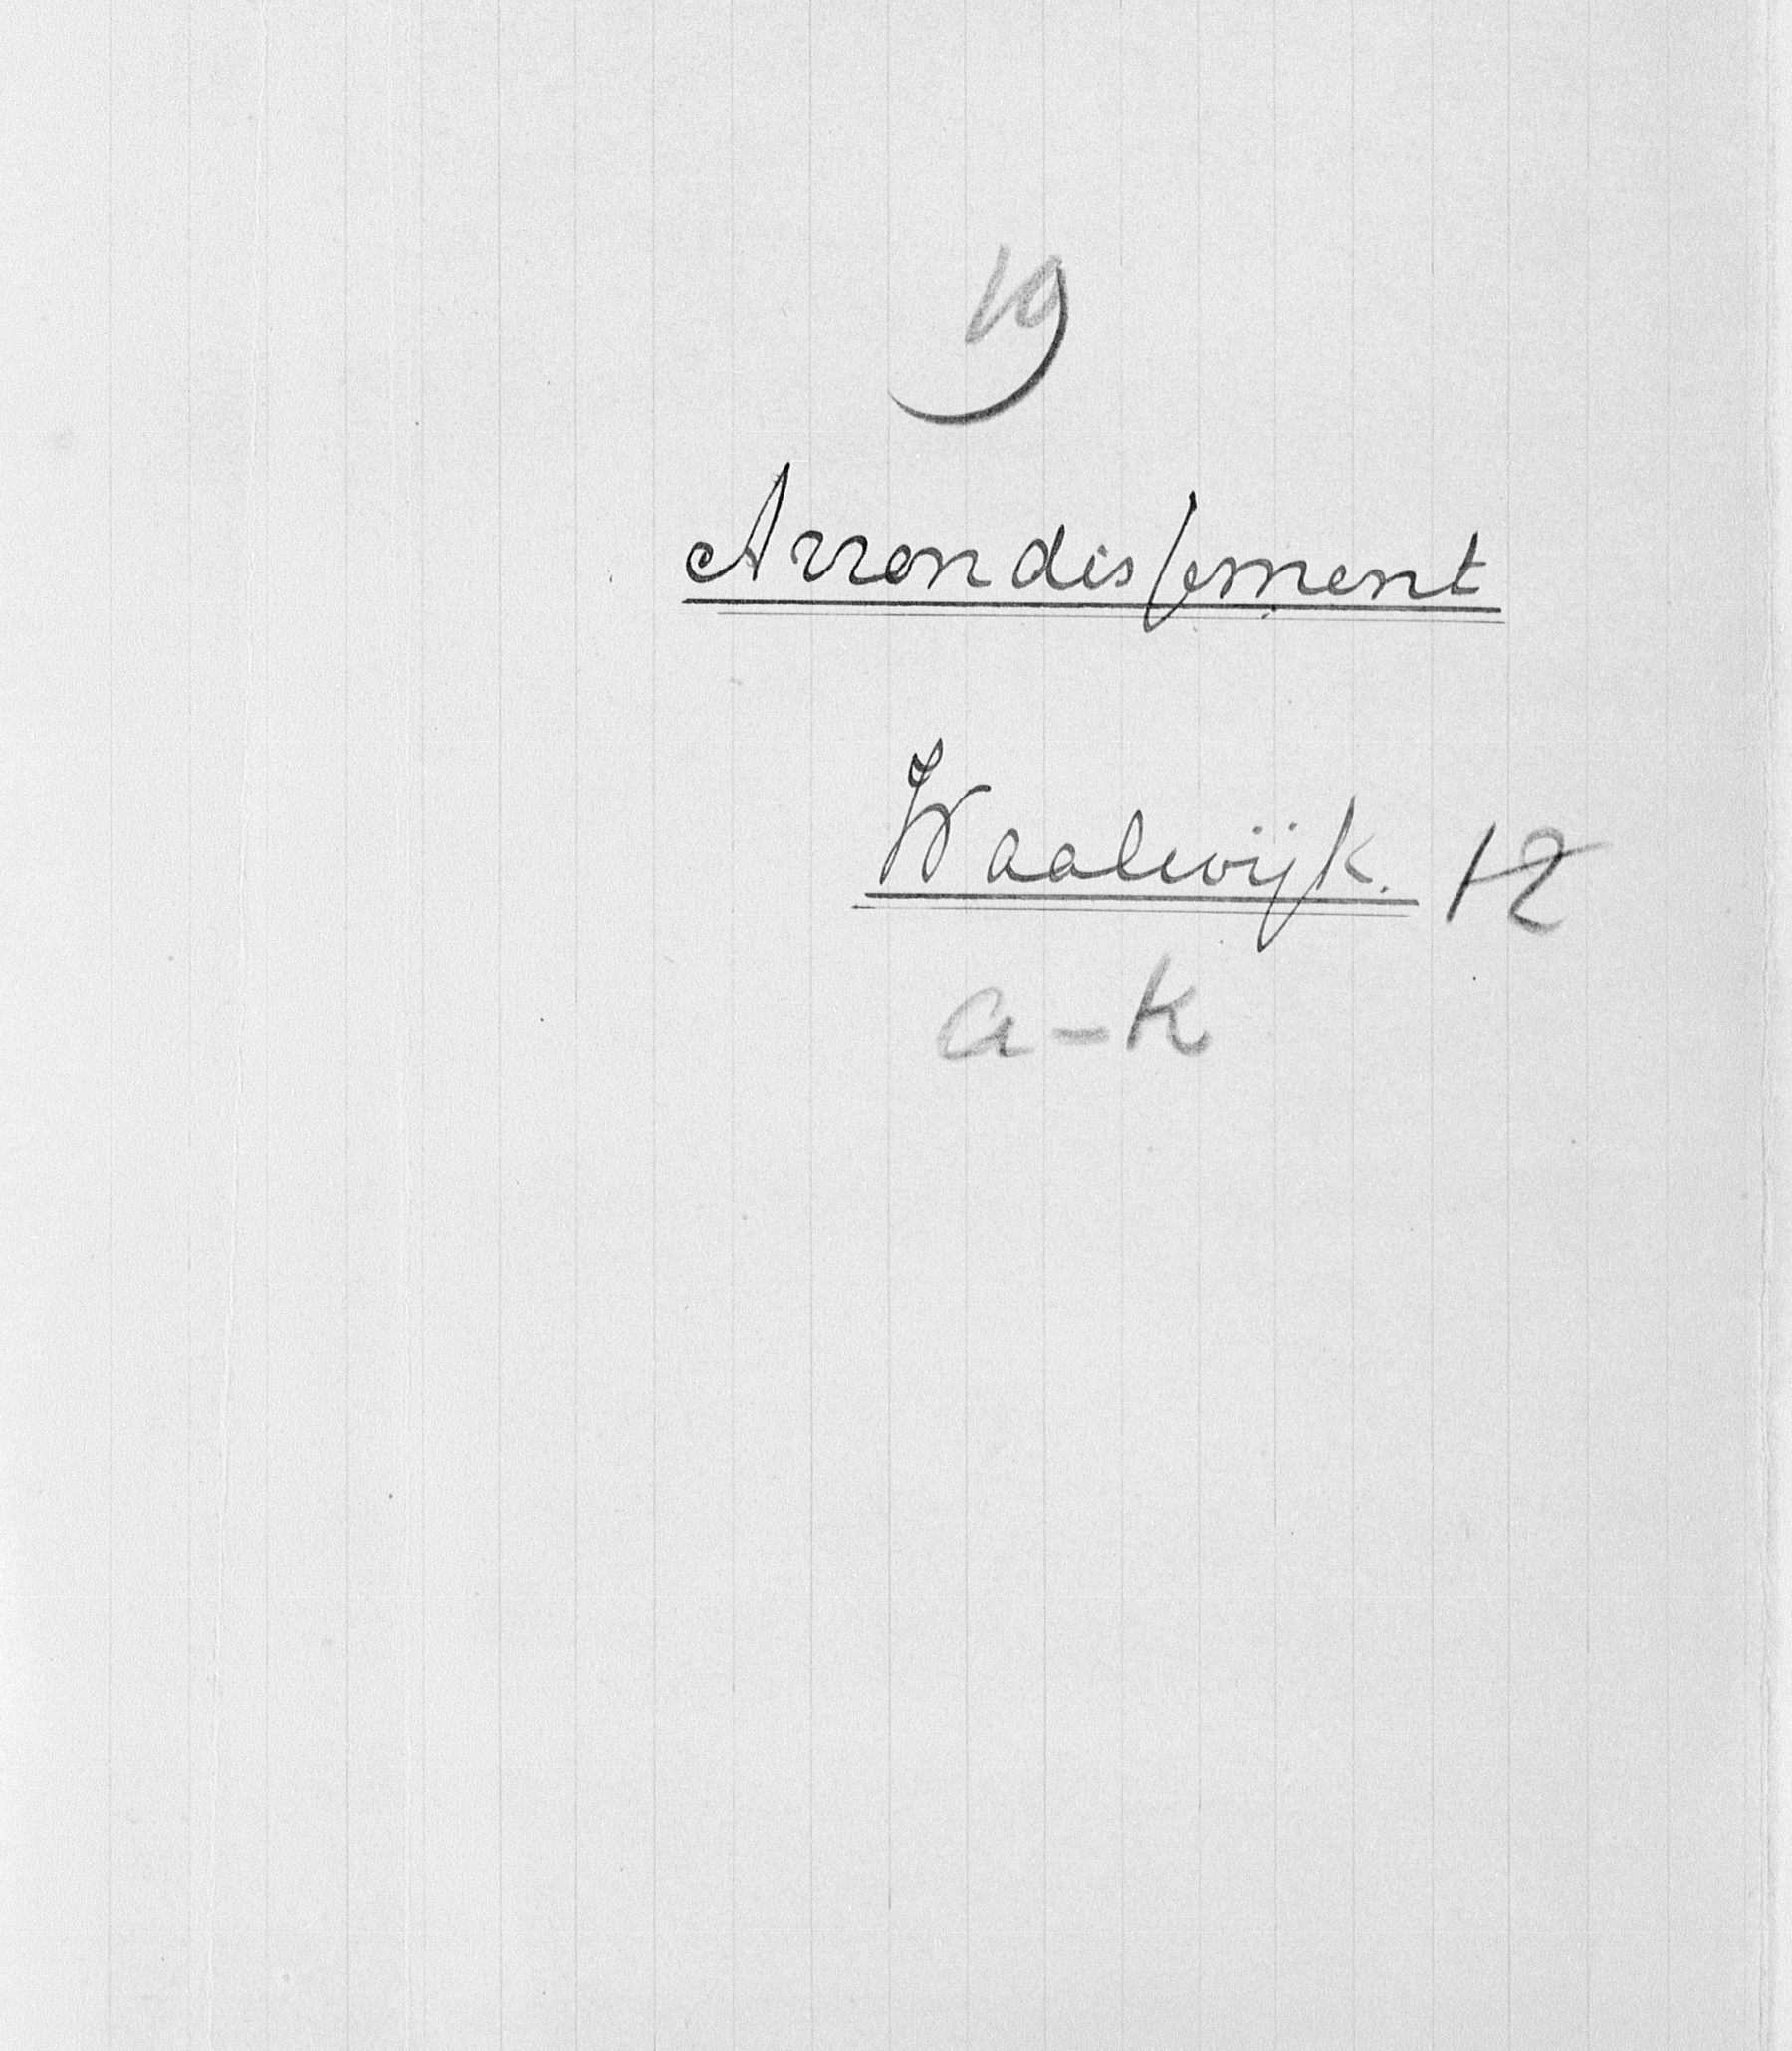 19
Arrondissement
Waalwijk. 12
a-k